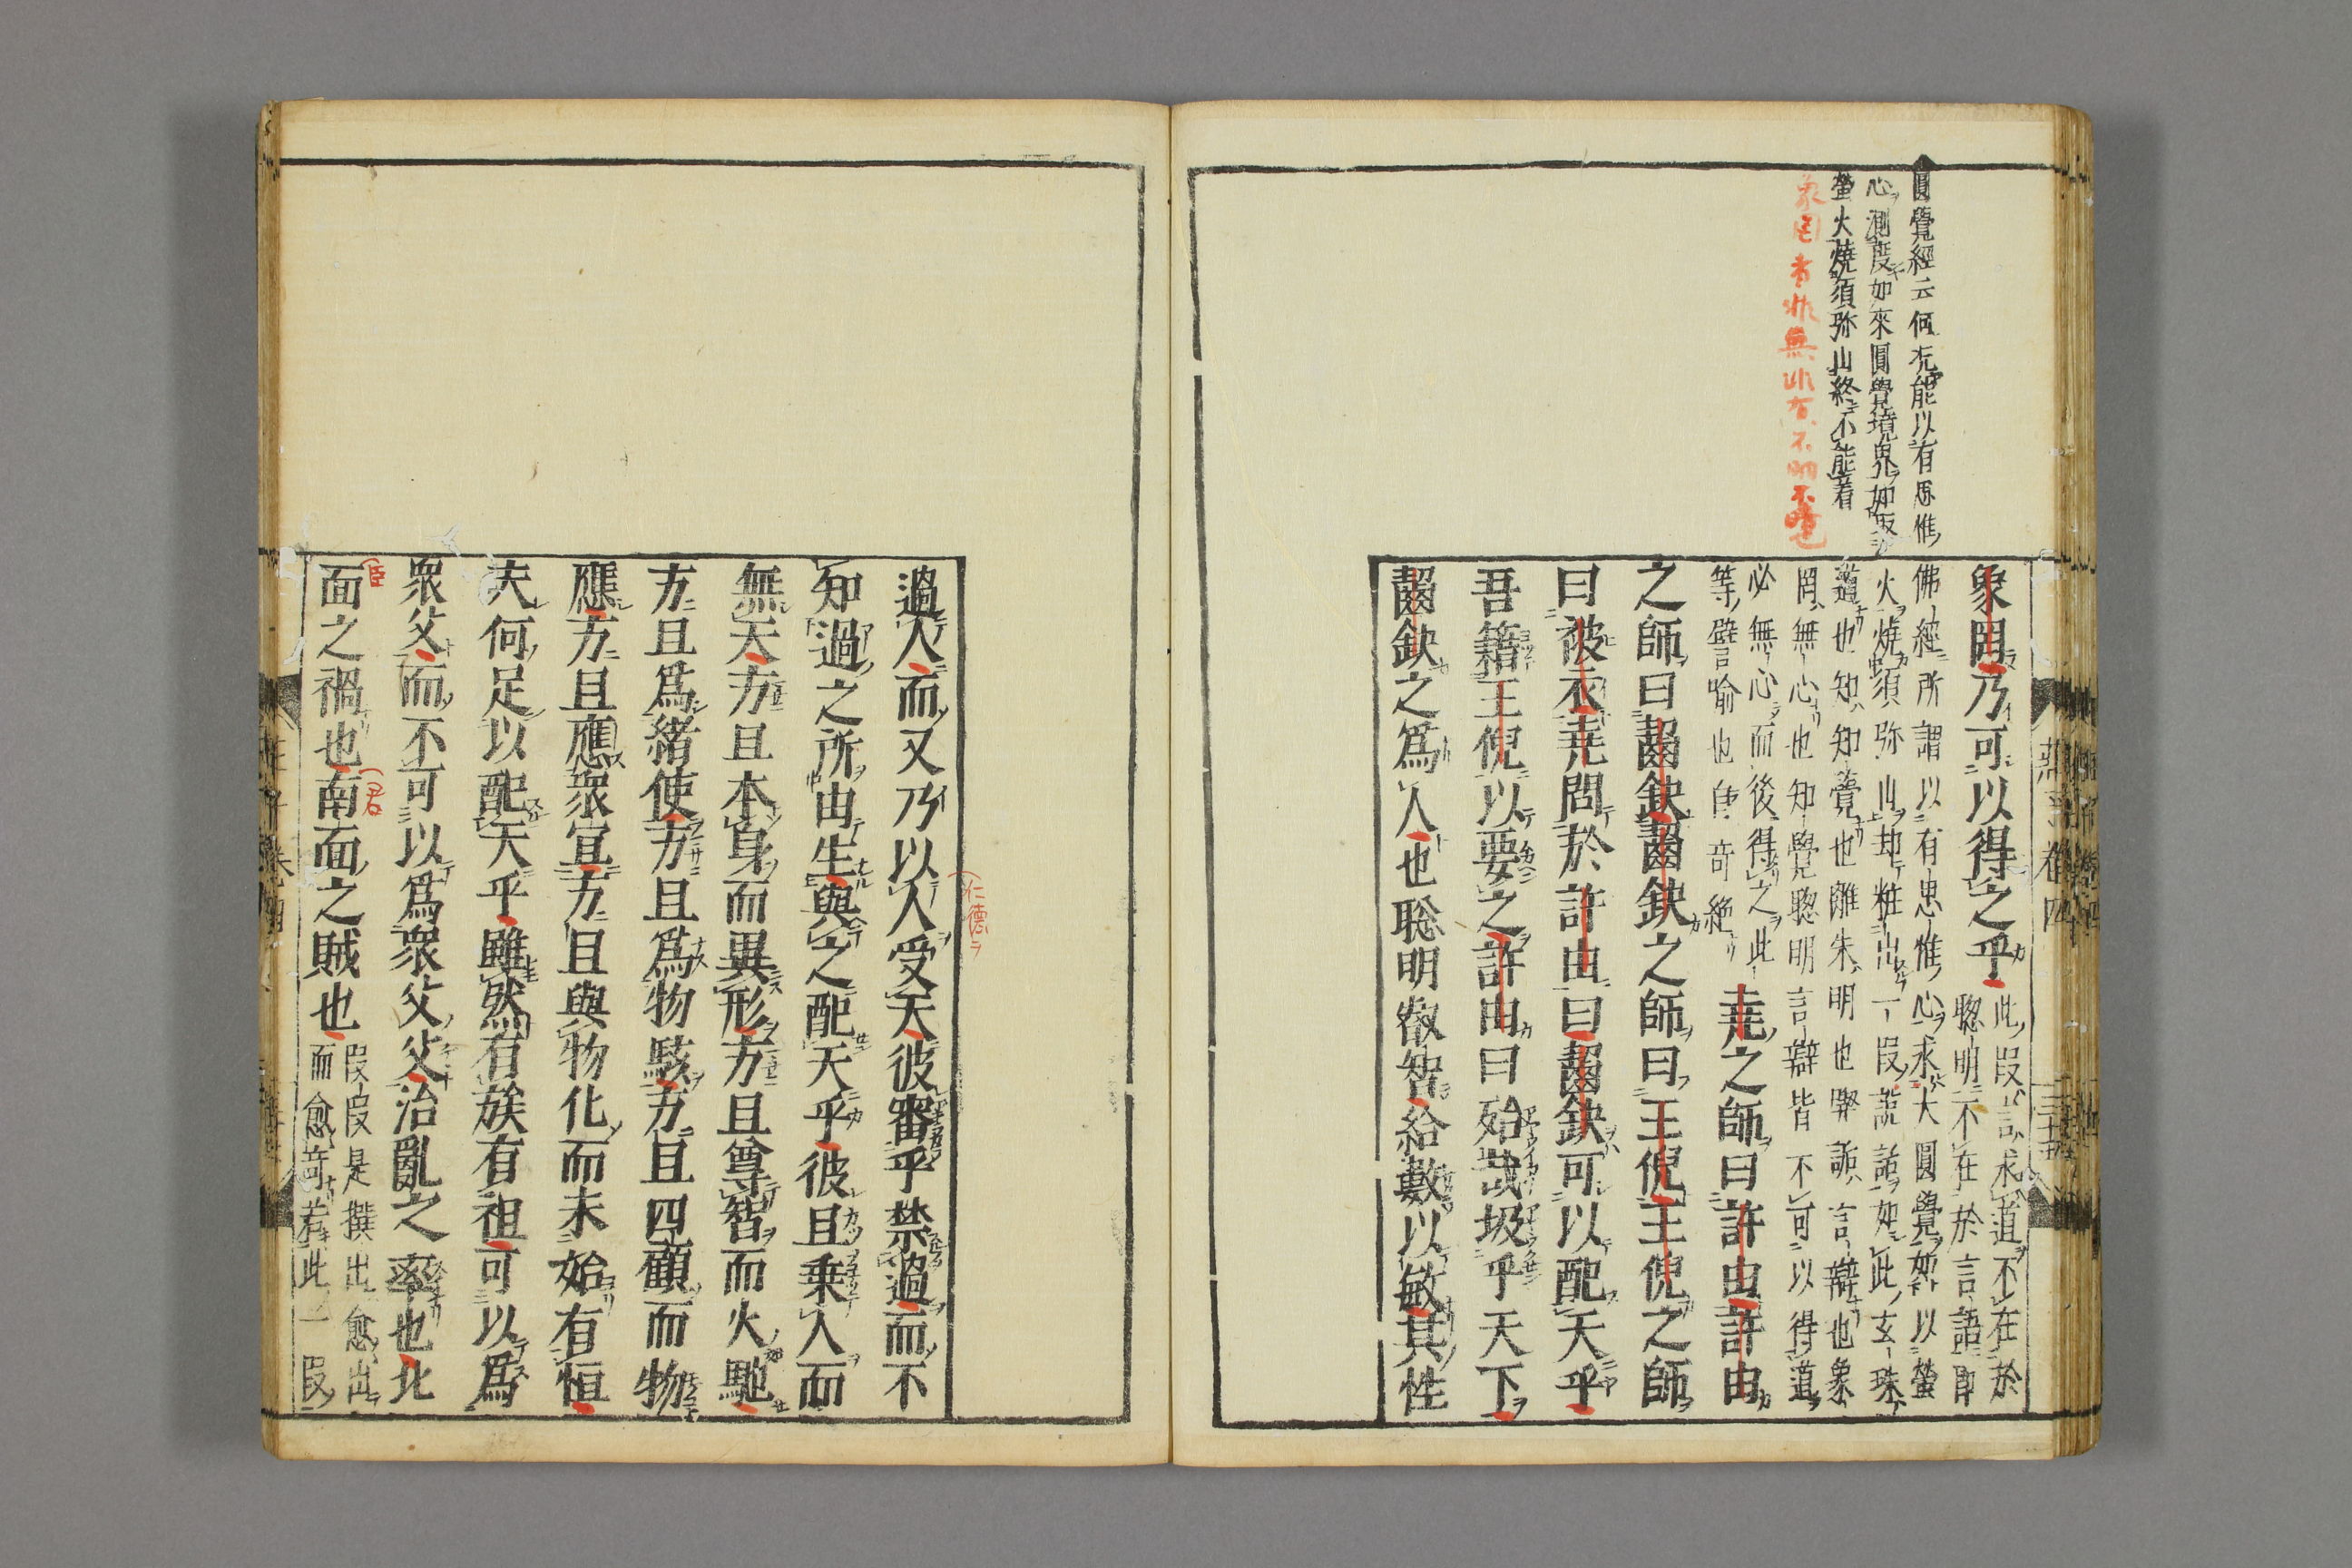 圓覺經云何況能以有思惟
心測度如來圓覺境界如取
螢火燒須弥山終不能着
象罔者非無非有不明不曖也
象罔乃可以得之乎
此段言求道不在於
聰明不在於言語即
佛經所謂以有思惟心求大圓覺如以螢
火燒須弥山却粧出一段說話如此玄珠
道也知知覺也離朱明也喫詬言辯也象
罔無心也知覺聰明言辯皆不可以得道
必無心而後得之此
等譬喻也自奇絶
堯之師曰許由許由
之師曰齧缺齧缺之師曰王倪王倪之師
曰被衣堯問於許由曰齧缺可以配天乎
吾籍王倪以要之許由曰殆哉圾乎天下
齧缺之爲人也聡明叡智給數以敏其性
過人而又乃以人受天彼審乎禁過而不
知過之所由生與之配天乎彼且乗人而
無天方且本身而異形方且尊智而火馳
方且爲緒使方且爲物駭方且四顧而物
應方且應衆宜方且與物化而未始有恒
夫何足以配天乎雖然有族有祖可以爲
衆父而不可以爲衆父父治亂之率也北
面之禍也南面之賊也
段段是撰出愈出
而愈奇若此一段
仁德ヲ
臣
君